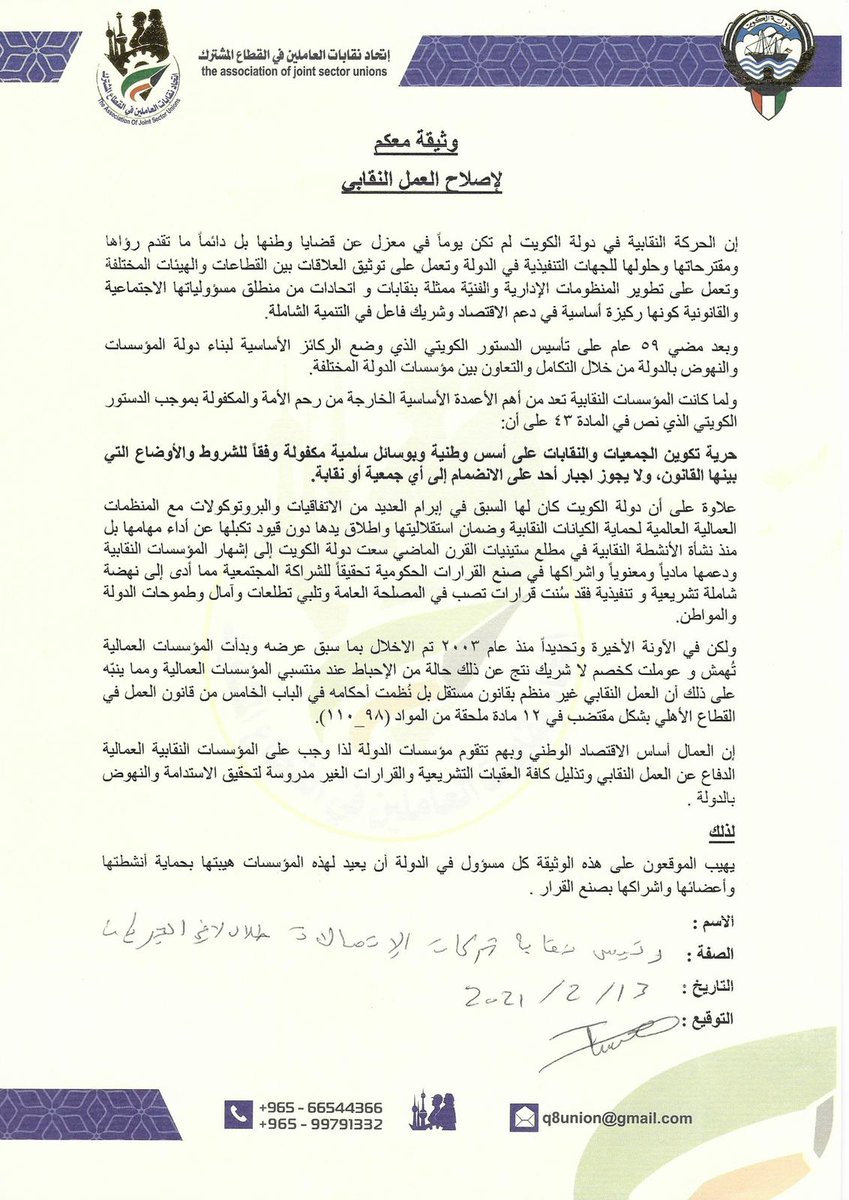 إتحاد نقابات العاملين في القطاع المشترك
the association of joint sector unions
إتحاد نقابات العاملين في القطاع المشترك
The Association Of Joint Sector Unions
دولة الكويت
وثيقة معكم
لإصلاح العمل النقابي
إن الحركة النقابية في دولة الكويت لم تكن يوماً في معزل عن قضايا وطنها بل دائماً ما تقدم رؤاها
ومقترحاتها وحلولها للجهات التنفيذية في الدولة وتعمل على توثيق العلاقات بين القطاعات والهيئات المختلفة
وتعمل على تطوير المنظومات الإدارية والفنيّة ممثلة بنقابات و اتحادات من منطلق مسؤولياتها الاجتماعية
والقانونية كونها ركيزة أساسية في دعم الاقتصاد وشريك فاعل في التنمية الشاملة.
وبعد مضي ٥٩ عام على تأسيس الدستور الكويتي الذي وضع الركائز الأساسية لبناء دولة المؤسسات
والنهوض بالدولة من خلال التكامل والتعاون بين مؤسسات الدولة المختلفة.
ولما كانت المؤسسات النقابية تعد من أهم الأعمدة الأساسية الخارجة من رحم الأمة والمكفولة بموجب الدستور
الكويتي الذي نص في المادة ٤٣ على أن:
حرية تكوين الجمعيات والنقابات على أسس وطنية وبوسائل سلمية مكفولة وفقاً للشروط والأوضاع التي
بينها القانون، ولا يجوز اجبار أحد على الانضمام إلى أي جمعية أو نقابة.
علاوة على أن دولة الكويت كان لها السبق في إبرام العديد من الاتفاقيات والبروتوكولات مع المنظمات
العمالية العالمية لحماية الكيانات النقابية وضمان استقلاليتها واطلاق يدها دون قيود تكبلها عن أداء مهامها بل
منذ نشأة الأنشطة النقابية في مطلع ستينيات القرن الماضي سعت دولة الكويت إلى إشهار المؤسسات النقابية
ودعمها مادياً ومعنوياً واشراكها في صنع القرارات الحكومية تحقيقاً للشراكة المجتمعية مما أدى إلى نهضة
شاملة تشريعية و تنفيذية فقد سُنت قرارات تصب في المصلحة العامة وتلبي تطلعات وآمال وطموحات الدولة
والمواطن.
ولكن في الآونة الأخيرة وتحديداً منذ عام ٢٠٠٣ تم الاخلال بما سبق عرضه وبدأت المؤسسات العمالية
تُهمش و عوملت كخصم لا شريك نتج عن ذلك حالة من الإحباط عند منتسبي المؤسسات العمالية ومما ينبّه
على ذلك أن العمل النقابي غير منظم بقانون مستقل بل نُظمت أحكامه في الباب الخامس من قانون العمل في
القطاع الأهلي بشكل مقتضب في ١٢ مادة ملحقة من المواد (٩٨_١١٠).
إن العمال أساس الاقتصاد الوطني وبهم تتقوم مؤسسات الدولة لذا وجب على المؤسسات النقابية العمالية
الدفاع عن العمل النقابي وتذليل كافة العقبات التشريعية والقرارات الغير مدروسة لتحقيق الاستدامة والنهوض
بالدولة .
لذلك
يهيب الموقعون على هذه الوثيقة كل مسؤول في الدولة أن يعيد لهذه المؤسسات هيبتها بحماية أنشطتها
وأعضائها واشراكها بصنع القرار .
الاسم :
الصفة : رئيس نقابة شركات الاتصالات
التاريخ : 2021/2/13
التوقيع :
+965 - 66544366
+965 - 99791332
q8union@gmail.com